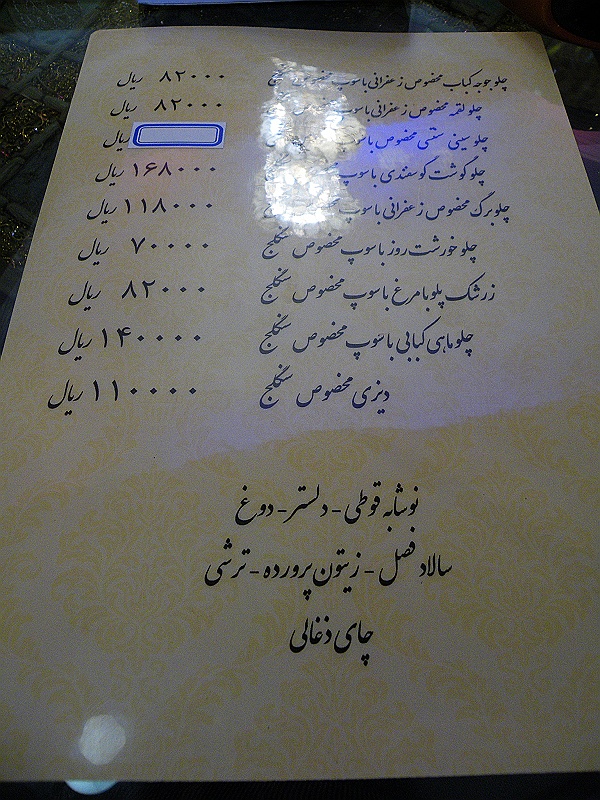 چلو جوجه کباب مخصوص زعفرانی با سوپ مخصوص سنگلج ۸۲۰۰۰ ریال
چلو لقمه مخصوص زعفرانی با سوپ ۸۲۰۰۰ ریال
چلو سینی سنتی مخصوص با سوپ ریال
چلو گوشت گوسفندی با سوپ ۱۶۸۰۰۰ ریال
چلو برگ مخصوص زعفرانی با سوپ ۱۱۸۰۰۰ ریال
چلو خورشت روز با سوپ مخصوص سنگلج ۷۰۰۰۰ ریال
زرشک پلو با مرغ با سوپ مخصوص سنگلج ۸۲۰۰۰ ریال
چلو ماهی کبابی با سوپ مخصوص سنگلج ۱۴۰۰۰۰ ریال
دیزی مخصوص سنگلج ۱۱۰۰۰۰ ریال
نوشابه قوطی - دلستر - دوغ
سالاد فصل - زیتون پرورده - ترشی
چای ذغالی